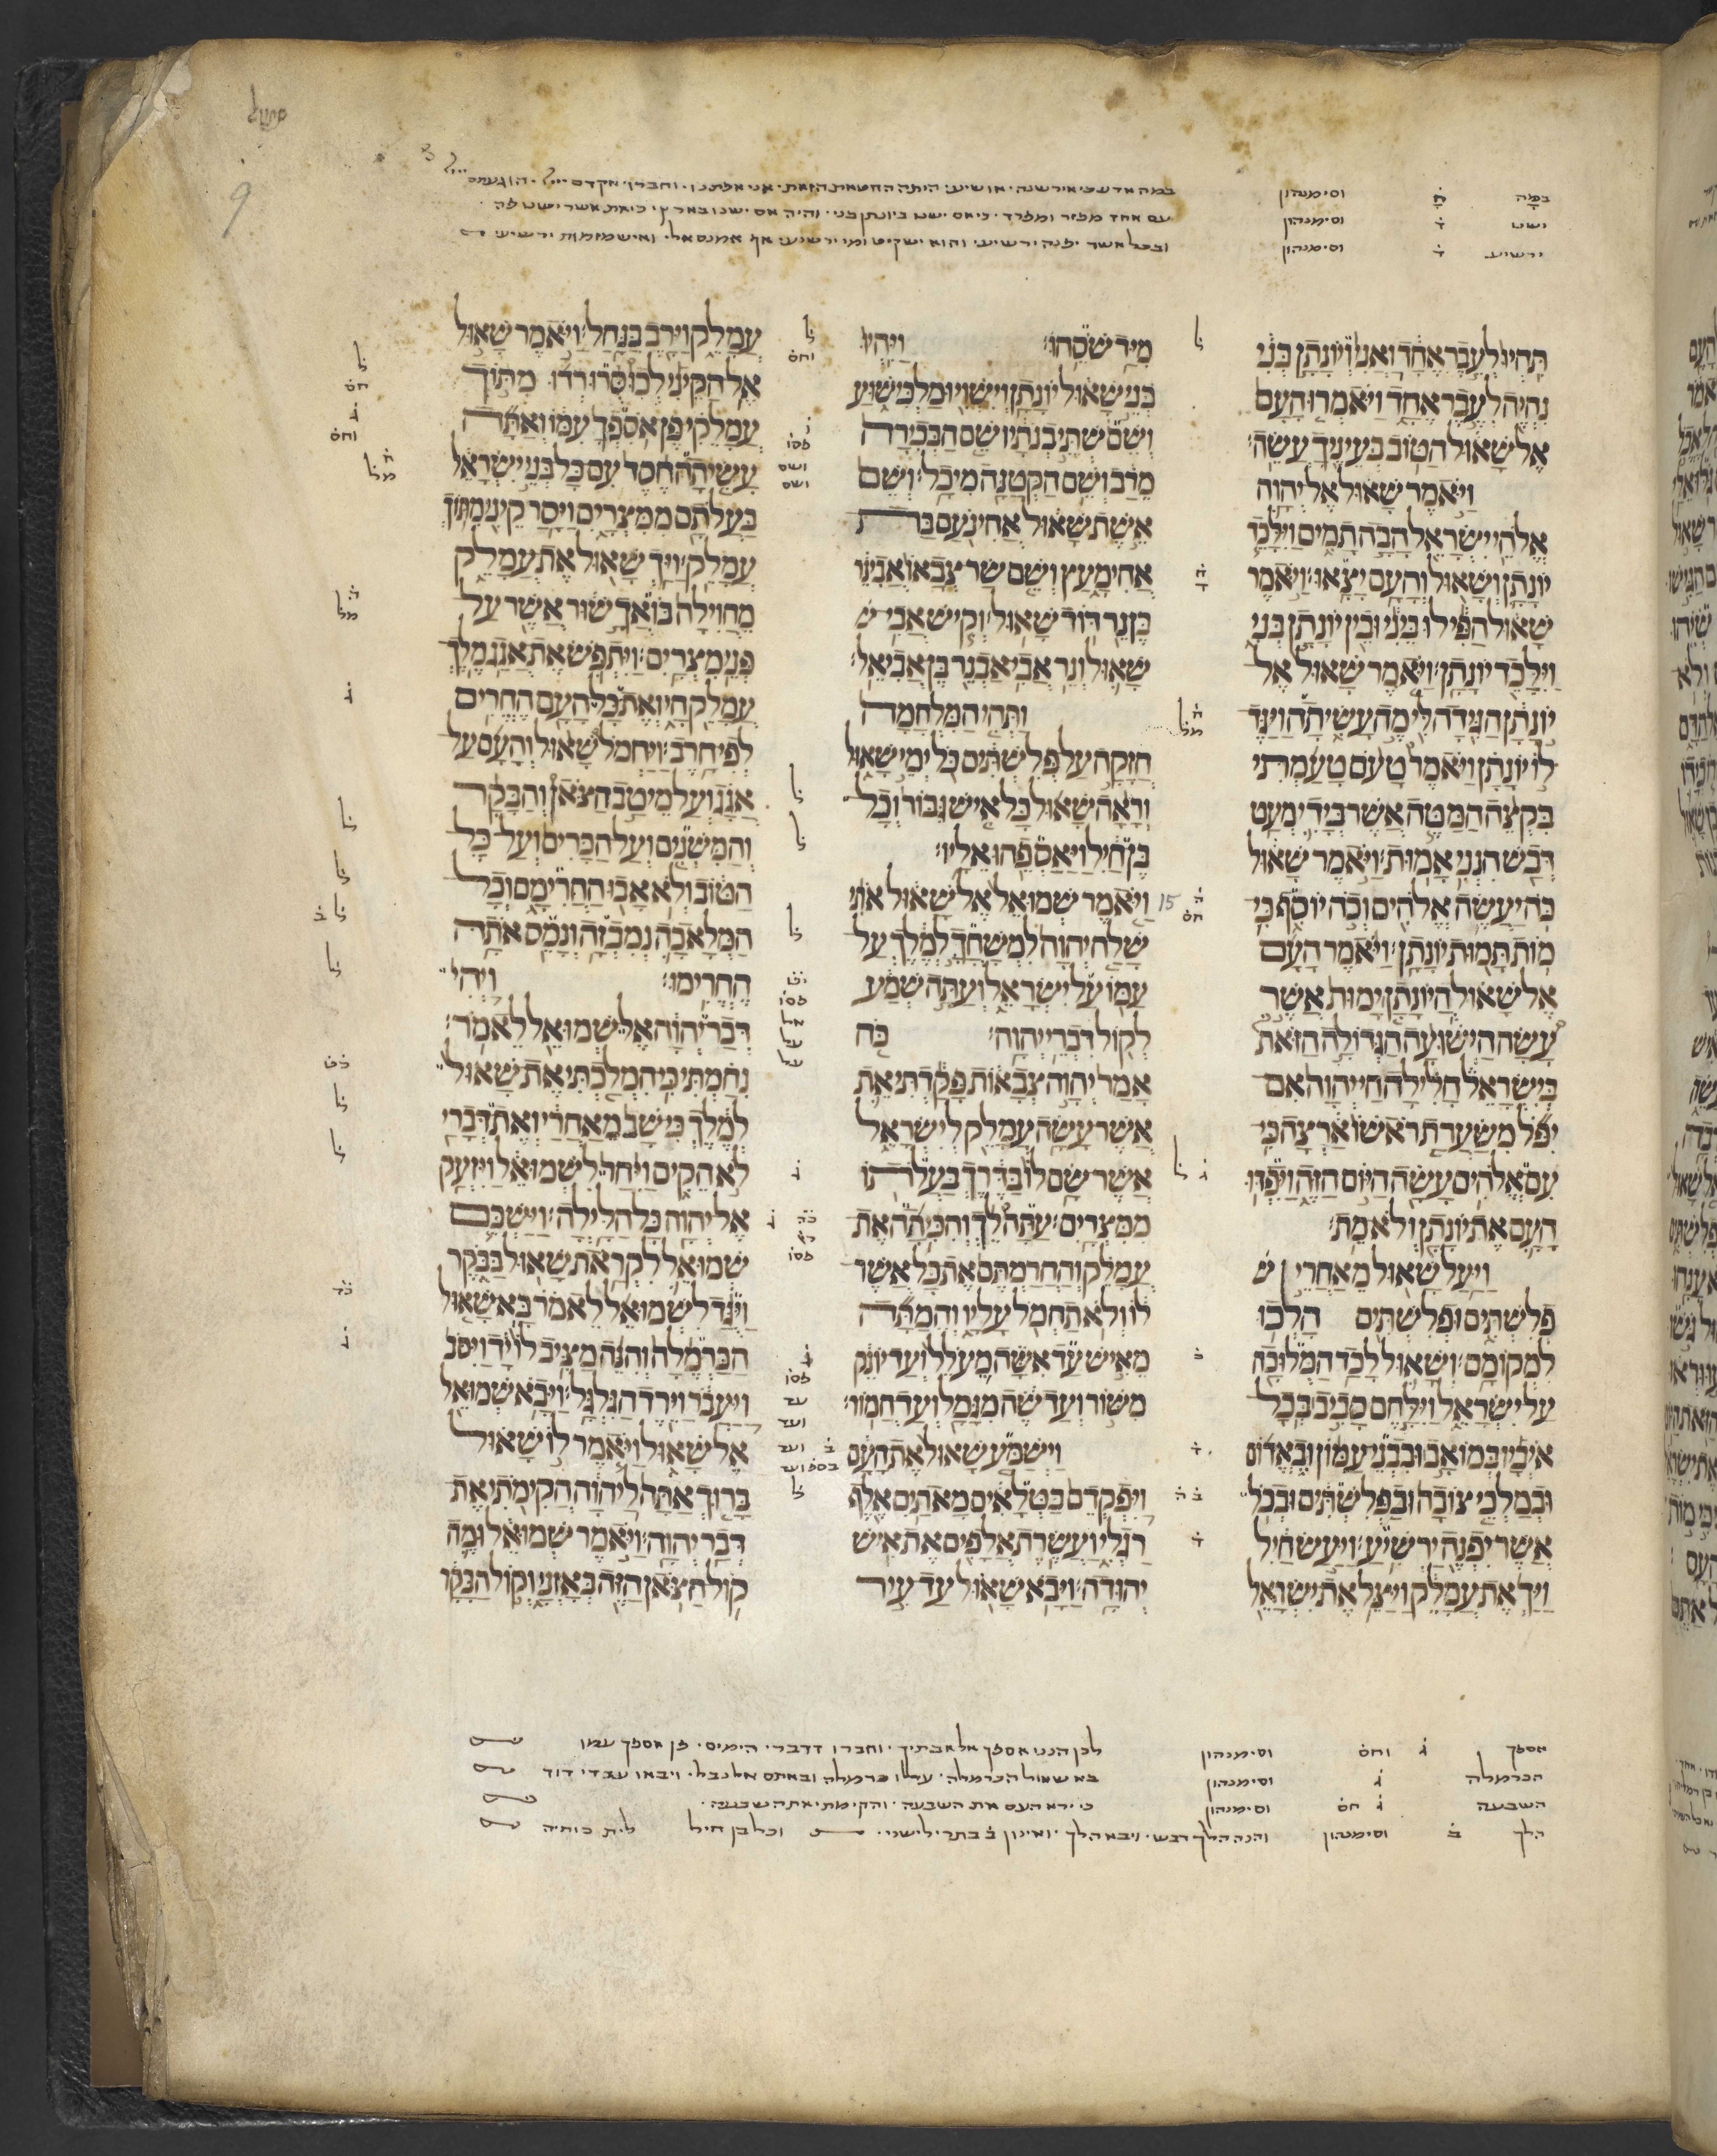 במה ח וסימנהון
ישנו ד וסימנהון
ירשיע ד וסימנהון
עם אחד מפזר ומפרד · כי אם ישנו ביונתן בני · והיה אם ישנו בארץ · כי את אשר ישנו פה ·
ובכל אשר יפנה ירשיע · והוא ישקיט ומי ירשיע · אף אמנם אל · ואיש מזמות ירשיע ·
תהיו לעבר אחד ואני ויונתן בני
נהיה לעבר אחד ויאמרו העם
אל שאול הטוב בעיניך עשה׃
ויאמר שאול אל יהוה
אלהי ישראל הבה תמים וילכד
יונתן ושאול והעם יצאו׃ ויאמר
שאול הפילו ביני ובין יונתן בני
וילכד יונתן׃ ויאמר שאול אל
יונתן הגידה לי מה עשיתה ויגד
לו יונתן ויאמר טעם טעמתי
בקצה המטה אשר בידי מעט
דבש הנני אמות׃ ויאמר שאול
כה יעשה אלהים וכה יוסף כי
מות תמות יונתן׃ ויאמר העם
אל שאול היונתן ימות אשר
עשה הישועה הגדולה הזאת
בישראל חלילה חי יהוה אם
יפל משערת ראשו ארצה כי
עם אלהים עשה היום הזה ויפדו
העם את יונתן ולא מת׃
ויעל שאול מאחרי
פלשתים ופלשתים הלכו
למקומם׃ ושאול לכד המלוכה
על ישראל וילחם סביב בכל
איביו במואב ובבני עמון ובאדום
ובמלכי צובה ובפלשתים ובכל
אשר יפנה ירשיע׃ ויעש חיל
ויך את עמלק ויצל את ישראל
מיד שסהו׃ ויהיו
בני שאול יונתן וישוי ומלכישוע
ושם שתי בנתיו שם הבכירה
מרב ושם הקטנה מיכל׃ ושם
אשת שאול אחינעם בת
אחימעץ ושם שר צבאו אבינר
בן נר דוד שאול׃ וקיש אבי ש
שאול ונר אבי אבנר בן אביאל׃
ותהי המלחמה
חזקה על פלשתים כל ימי שאול
וראה שאול כל איש גבור וכל
בן חיל ויאספהו אליו׃
ויאמר שמואל אל שאול אתי
שלח יהוה למשחך למלך על
עמו על ישראל ועתה שמע
לקול דברי יהוה׃ כה
אמר יהוה צבאות פקדתי את
אשר עשה עמלק לישראל
אשר שם לו בדרך בעלתו
ממצרים׃ עתה לך והכיתה את
עמלק והחרמתם את כל אשר
לו ולא תחמל עליו והמתה
מאיש עד אשה מעלל ועד יונק
משור ועד שה מגמל ועד חמור׃
וישמע שאול את העם
ויפקדם בטלאים מאתים אלף
רגלי ועשרת אלפים את איש
יהודה׃ ויבא שאול עד עיר
עמלק וירב בנחל׃ ויאמר שאול
אל הקיני לכו סרו רדו מתוך
עמלקי פן אספך עמו ואתה
עשיתה חסד עם כל בני ישראל
בעלתם ממצרים ויסר קיני מתוך
עמלק׃ ויך שאול את עמלק
מחוילה בואך שור אשר על
פני מצרים׃ ויתפש את אגג מלך
עמלק חי ואת כל העם החרים
לפי חרב׃ ויחמל שאול והעם על
אגג ועל מיטב הצאן והבקר
והמשנים ועל הכרים ועל כל
הטוב ולא אבו החרימם וכל
המלאכה נמבזה ונמס אתה
החרימו׃ ויהי
דבר יהוה אל שמואל לאמר׃
נחמתי כי המלכתי את שאול
למלך כי שב מאחרי ואת דברי
לא הקים ויחר לשמואל ויזעק
אל יהוה כל הלילה׃ וישכם
שמואל לקראת שאול בבקר
ויגד לשמואל לאמר בא שאול
הכרמלה והנה מציב לו יד ויסב
ויעבר וירד הגלגל׃ ויבא שמואל
אל שאול ויאמר לו שאול
ברוך אתה ליהוה הקימתי את
דבר יהוה׃ ויאמר שמואל ומה
קול הצאן הזה באזני וקול הבקר
15
9
אספך ג וחס וסימנהון לכן הנני אספך אל אבתיך · וחברו דדברי הימים · פן אספך עמו
הכרמלה ג וסימנהון בא שאול הכרמלה · עלו כרמלה ובאתם אל נבל · ויבאו עבדי דוד
השבעה ג חס וסימנהון כי ירא העם את השבעה · והקימתי את השבעה ·
הלך ב וסימנהון והנה הלך דבש · ויבא הלך · ואינון ב בתרי לישני · וכל בן חיל לית כותיה